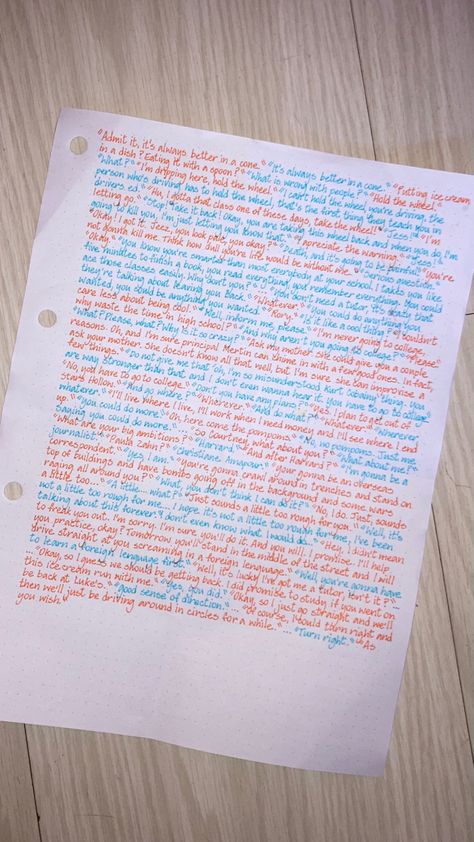 "Admit it, it's always better in a cone." "It's always better in a cone." "Putting ice cream
in a dish? Eating it with a spoon?" "What is wrong with people?" "Hold the wheel."
"What?" "I'm dripping here, hold the wheel." "I can't hold the wheel, you're driving, the
person who's driving has to hold the wheel, that's the first thing they teach you in
drivers ed." "Ha, I gotta that class one of these days, take the wheel!" "Jess!" "I'm
letting go." "Stop! Take it back! Okay, you are taking this wheel back and when you do, I'm
going to kill you, I'm just letting you know that." "I appreciate the warning." "Jess!"
"Okay! I got it. Jeez, you look pale, you okay?" "Death, and it's going to be painful." "You're
not gonna kill me. Think how dull you're life would be without me." "... question."
"Okay." "You know you're smarter than most everybody at your school, I take you like
five minutes to finish a book, you read everything, you remember everything. You could
ace those classes easily. Why don't you?" "I don't need a tutor." "Is it really that
they're talking about leaving you back." "Whatever." "You could do anything you
wanted, you could be anything you wanted." "Rory." "Is it like a cool thing?" "I couldn't
care less about being cool." "Well, inform me, please." "I'm never going to college,
why waste the time in high school?" "And why aren't you going to college?" "Please"
"What? Please, what? Why is it so crazy?" "Ask my mother, she could give you a couple
reasons. Oh, and I'm sure principal Mertin can chime in with a few good ones. In fact,
ask your mother, she doesn't know all that well, but I'm sure she can improvise a
few things." "Do not give me that 'oh, I'm so misunderstood Kurt Cobainy' thing, you
are way stronger than that and I don't even wanna hear it. You have to go to college."
"No, you have to go to college." "Don't you have any plans?" "Yes, I plan to get out of
Stars Hollow." "And go where?" "Whatever." "And do what?" "Whatever." "Wherever,
whatever." "I'll live where I live, I'll work when I need money, and I'll see where I end
up." "You could do more." "Oh, here come the pompoms." "No, no pompoms. Just me
saying you could do more." ... "So Courtney, what about you?" "What about me?"
"What are your big ambitions?" "Harvard." "And after Harvard?" "I'm gonna be a
journalist." "Paula Zahn?" "Christiane Amanpour." "Your gonna be an overseas
correspondent." "Yes, I am." "You're gonna crawl around in trenches and stand on
top of buildings and have bombs going off in the background and some wars
raging all around you?" "What, you don't think I can do it?" "No, I do. Just, sounds
a little too..." "A little... what?" "Just sounds a little too rough for you." "Well, it's
not a little too rough for me... I hope, it's not a little too rough for me, I've been
talking about this forever! I don't even know what I would do..." "Hey, I didn't mean
to freak you out. I'm sorry. I'm sure you'll do it. And you will. I promise. I'll help
you, practice, okay? Tomorrow you'll stand in the middle of the street and I will
drive straight at you screaming in a foreign language." "Well, you're gonna have
to learn a foreign language first." "Well, it's lucky I've got me a tutor, isn't it?"...
"Okay, so I guess we should be getting back, I did promise to study if you went on
this ice-cream run with me." "Yes, you did." "Okay, so I just go straight and we'll
be back at Luke's." "good sense of direction." "Of course, I could turn right and
then we'll just be driving around in circles for a while."... "Turn right." "As
you wish."